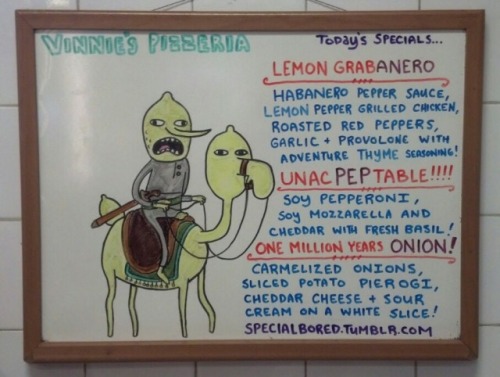 VINNIE'S PIZZERIA
TODAY'S SPECIALS...
LEMON GRABANERO
HABANERO PEPPER SAUCE,
LEMON PEPPER GRILLED CHICKEN,
ROASTED RED PEPPERS,
GARLIC + PROVOLONE WITH
ADVENTURE THYME SEASONING!
UNACPEPTABLE!!!!
SOY PEPPERONI,
SOY MOZZARELLA AND
CHEDDAR WITH FRESH BASIL!
ONE MILLION YEARS ONION!
CARMELIZED ONIONS,
SLICED POTATO PIEROGI,
CHEDDAR CHEESE + SOUR
CREAM ON A WHITE SLICE!
SPECIALBORED.TUMBLR.COM